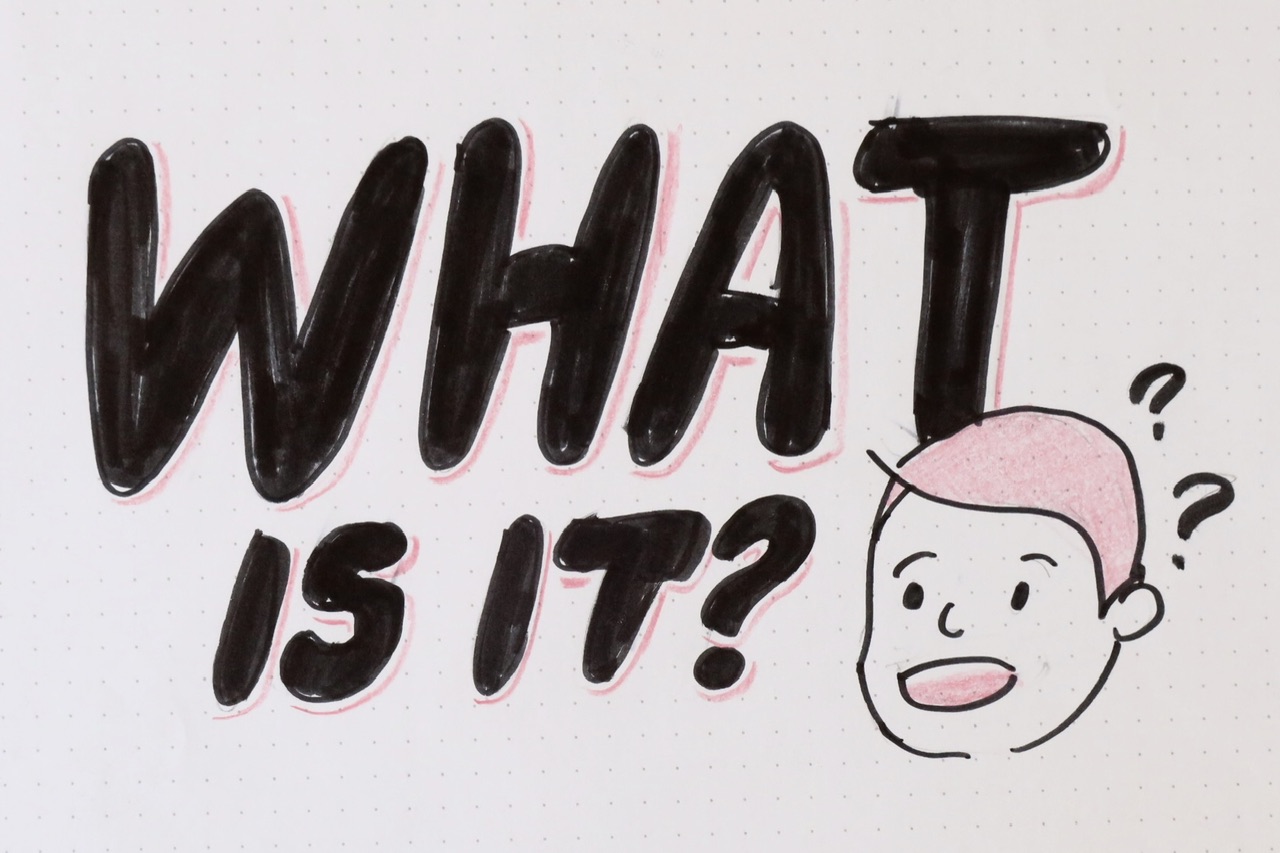 WHAT
IS IT?
?
?